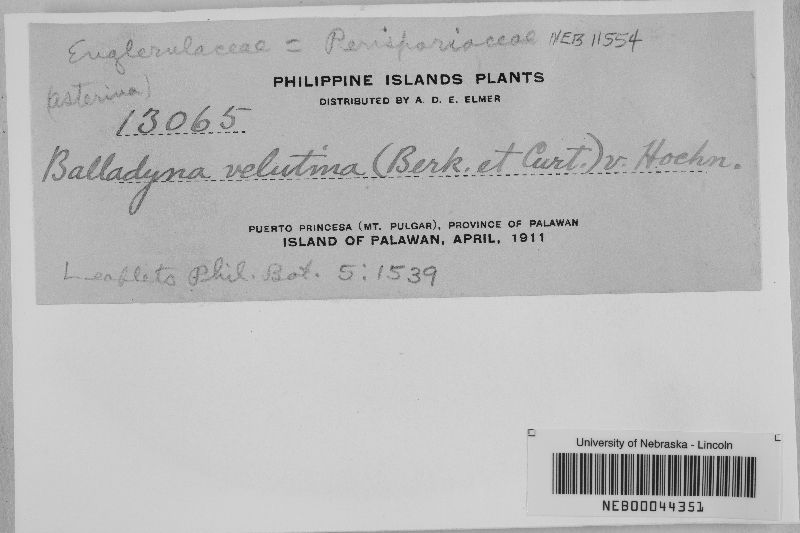 Englerulaceae = Perisporiaceae NEB 11554
(Asterina)
PHILIPPINE ISLANDS PLANTS
DISTRIBUTED BY A. D. E. ELMER
13065
Balladyna velutina (Berk. et Curt.) v. Hoehn.
PUERTO PRINCESA (MT. PULGAR), PROVINCE OF PALAWAN
ISLAND OF PALAWAN, APRIL, 1911
Leaflets Phil. Bot. 5:1539
University of Nebraska - Lincoln
NEB00044351